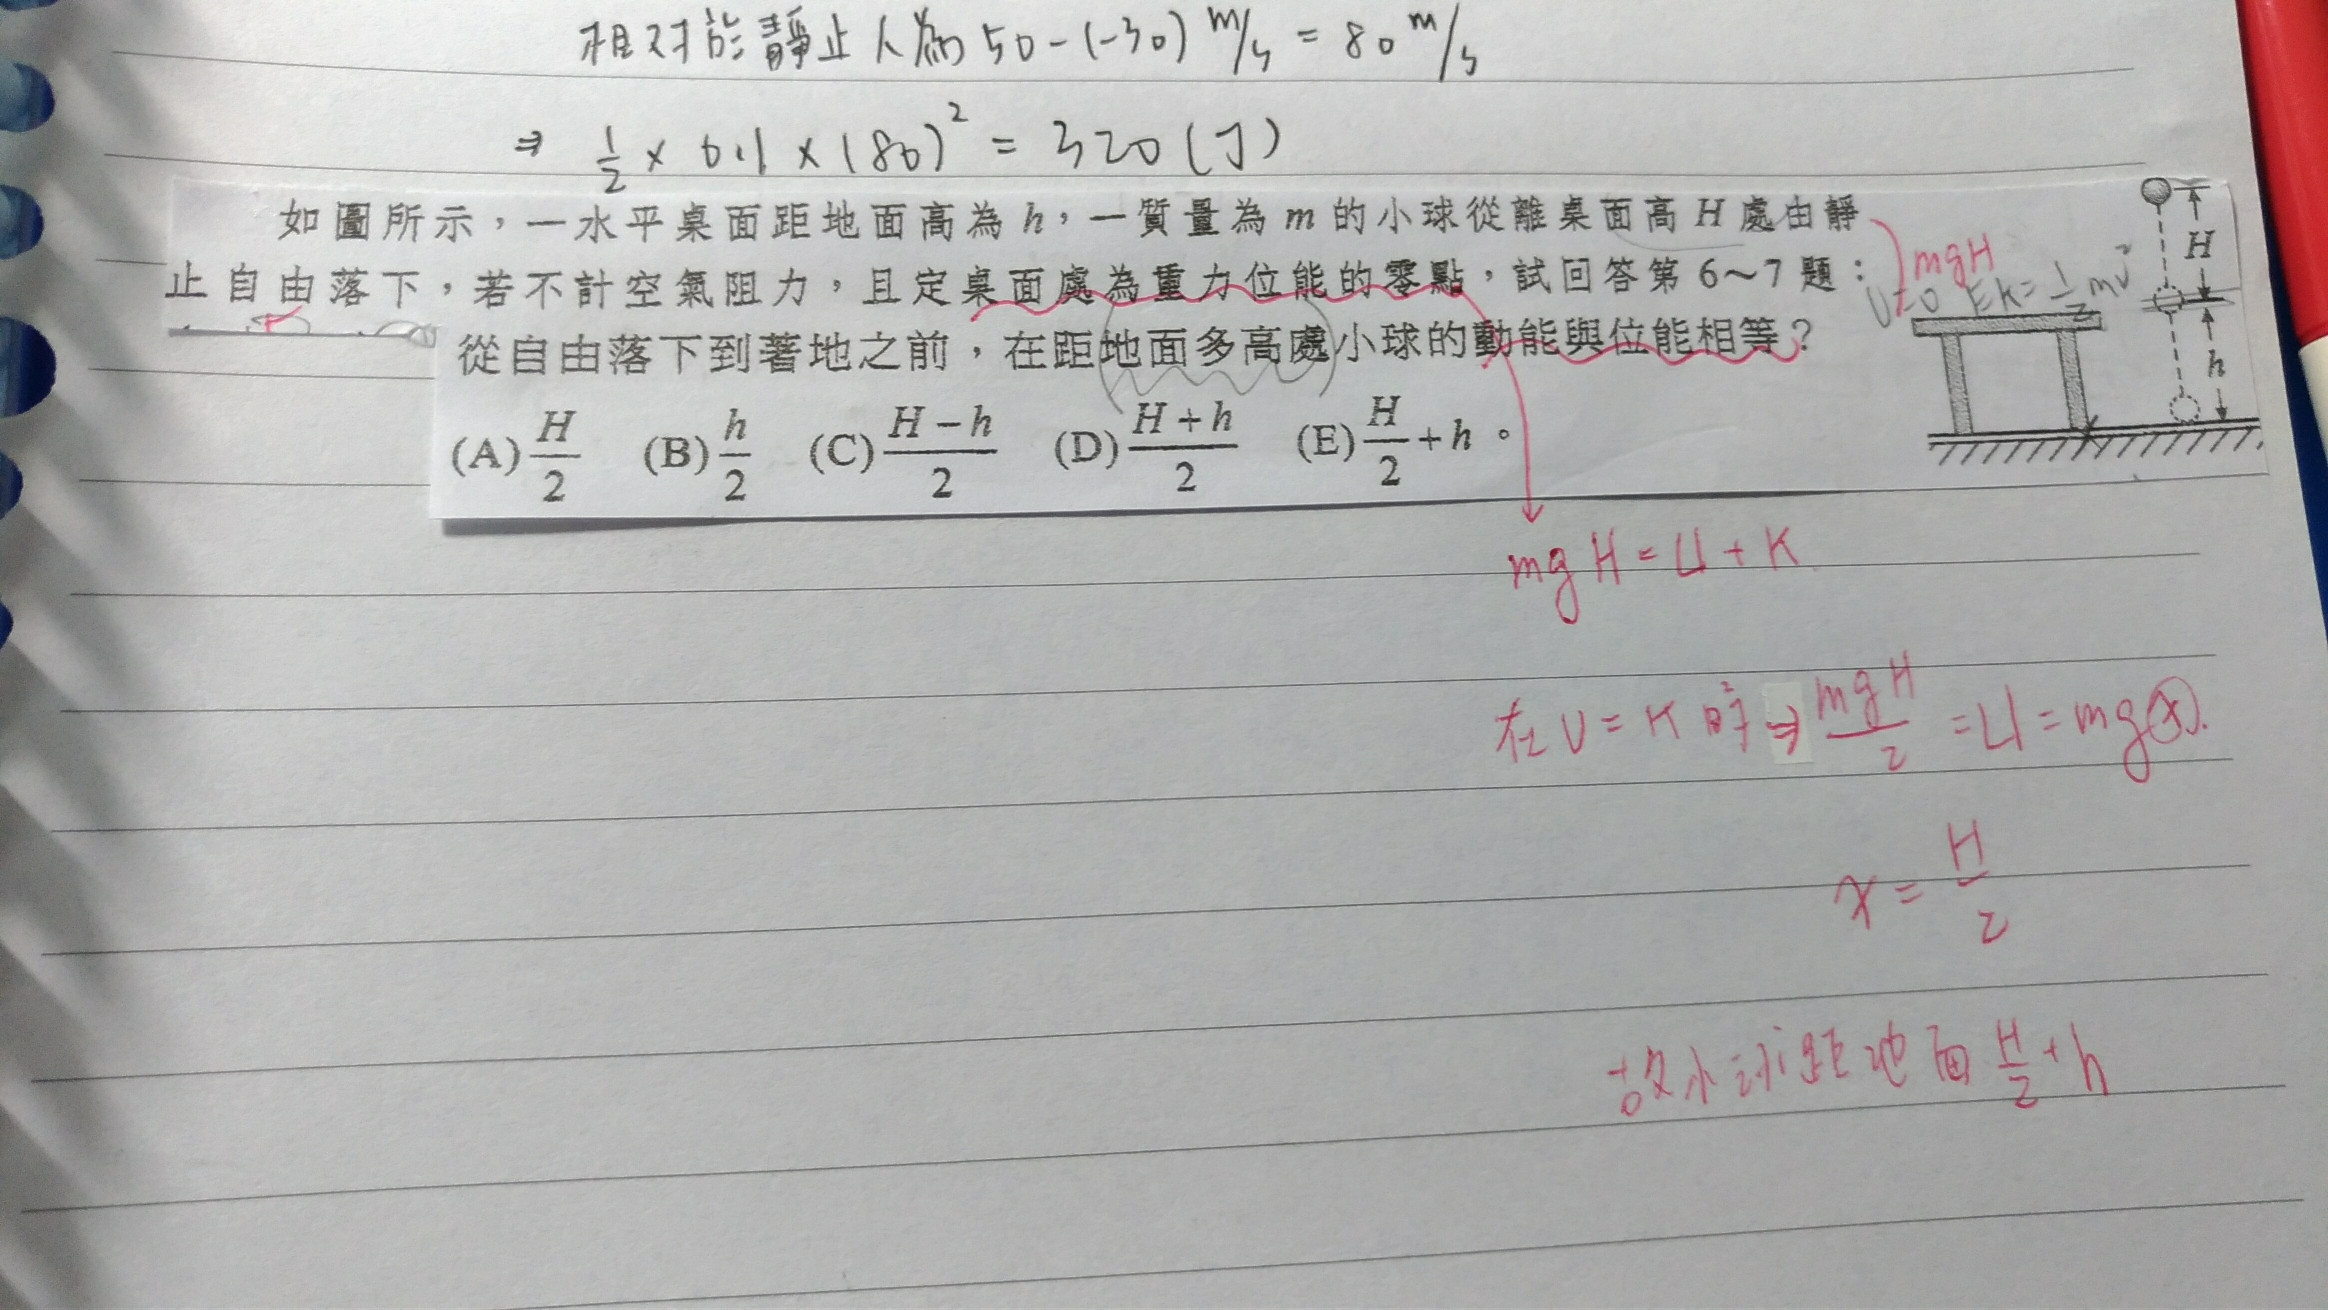 相對於靜止人為 50-(-30) m/s = 80 m/s
⇒ 1/2 × 0.1 × (80)² = 320 (J)
如圖所示，一水平桌面距地面高為 h，一質量為 m 的小球從離桌面高 H 處由靜
止自由落下，若不計空氣阻力，且定桌面處為重力位能的零點，試回答第 6～7 題：
mgH
U=0 EK=1/2 mv²
H
h
從自由落下到著地之前，在距地面多高處小球的動能與位能相等？
(A) H/2 (B) h/2 (C) H－h/2 (D) H＋h/2 (E) H/2＋h。
mgH = U + K
在 U = K 時 ⇒ mgH/2 = U = mg(x).
x = H/2
故小球距地面 H/2 + h